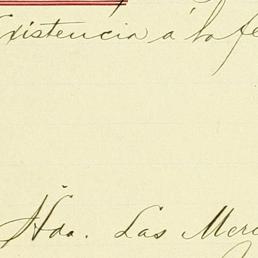 Existencia á la fe
Hda. Las Mer